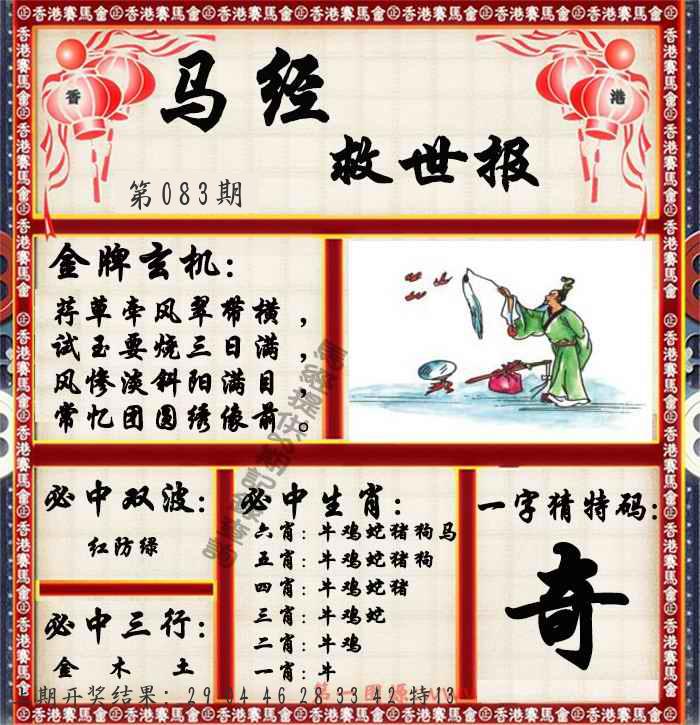 香港賽馬會
香
港
马经
救世报
第083期
金牌玄机:
荇草牵风翠带横，
试玉要烧三日满，
风惨淡斜阳满目，
常忆团圆绣像前。
必中双波:
红防绿
必中三行:
金 木 土
必中生肖:
六肖:牛鸡蛇猪狗马
五肖:牛鸡蛇猪狗
四肖:牛鸡蛇猪
三肖:牛鸡蛇
二肖:牛鸡
一肖:牛
一字猜特码:
奇
期开奖结果: 29 04 46 28 33 42 特13
第一图源